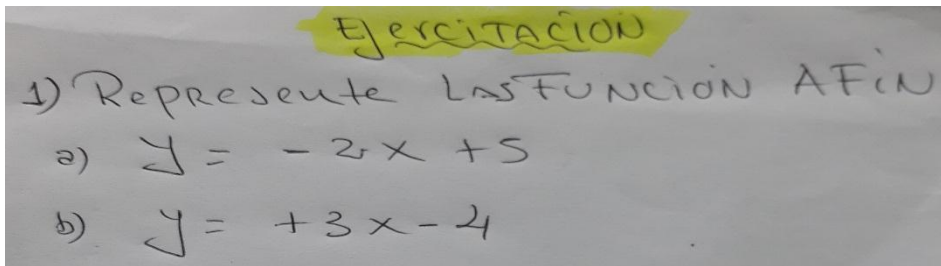 EJERCITACIÓN
1) Represente LAS FUNCIÓN AFÍN
a) y = -2x +5
b) y = +3x-4